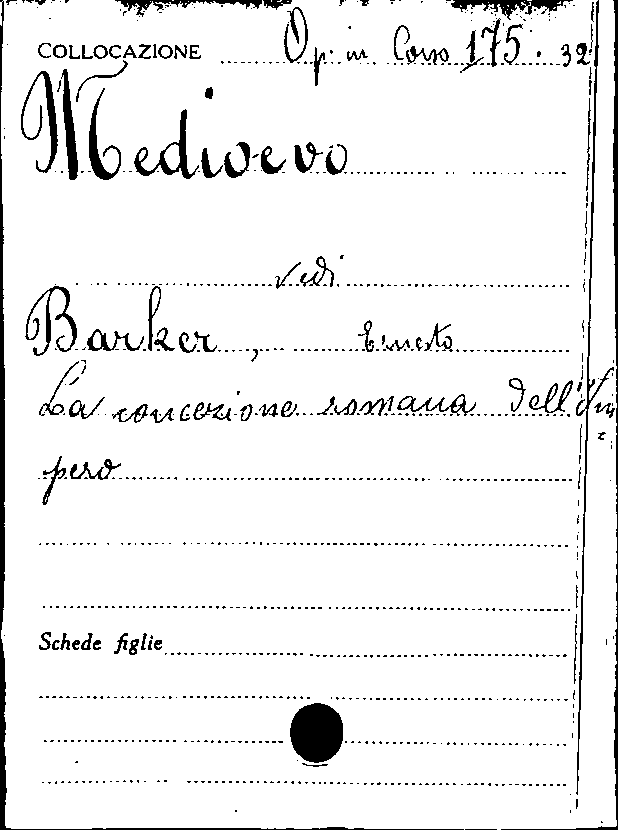 COLLOCAZIONE Op. in Corso 175. 32
Medioevo
vedi
Barker, Ernesto
La concezione romana dell'Im
pero
Schede figlie